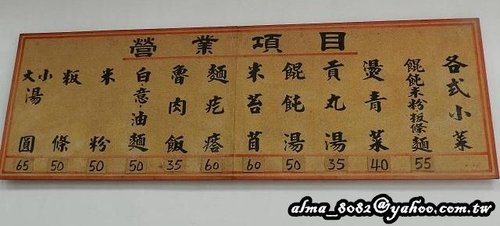 營業項目
各式小菜
餛飩米粉粄條麵 55
燙青菜 40
貢丸湯 35
餛飩湯 50
米苔苜 60
麵疙瘩 60
魯肉飯 35
白意·油麵 50
米粉 50
粄條 50
大小湯圓 65
alma_8082@yahoo.com.tw